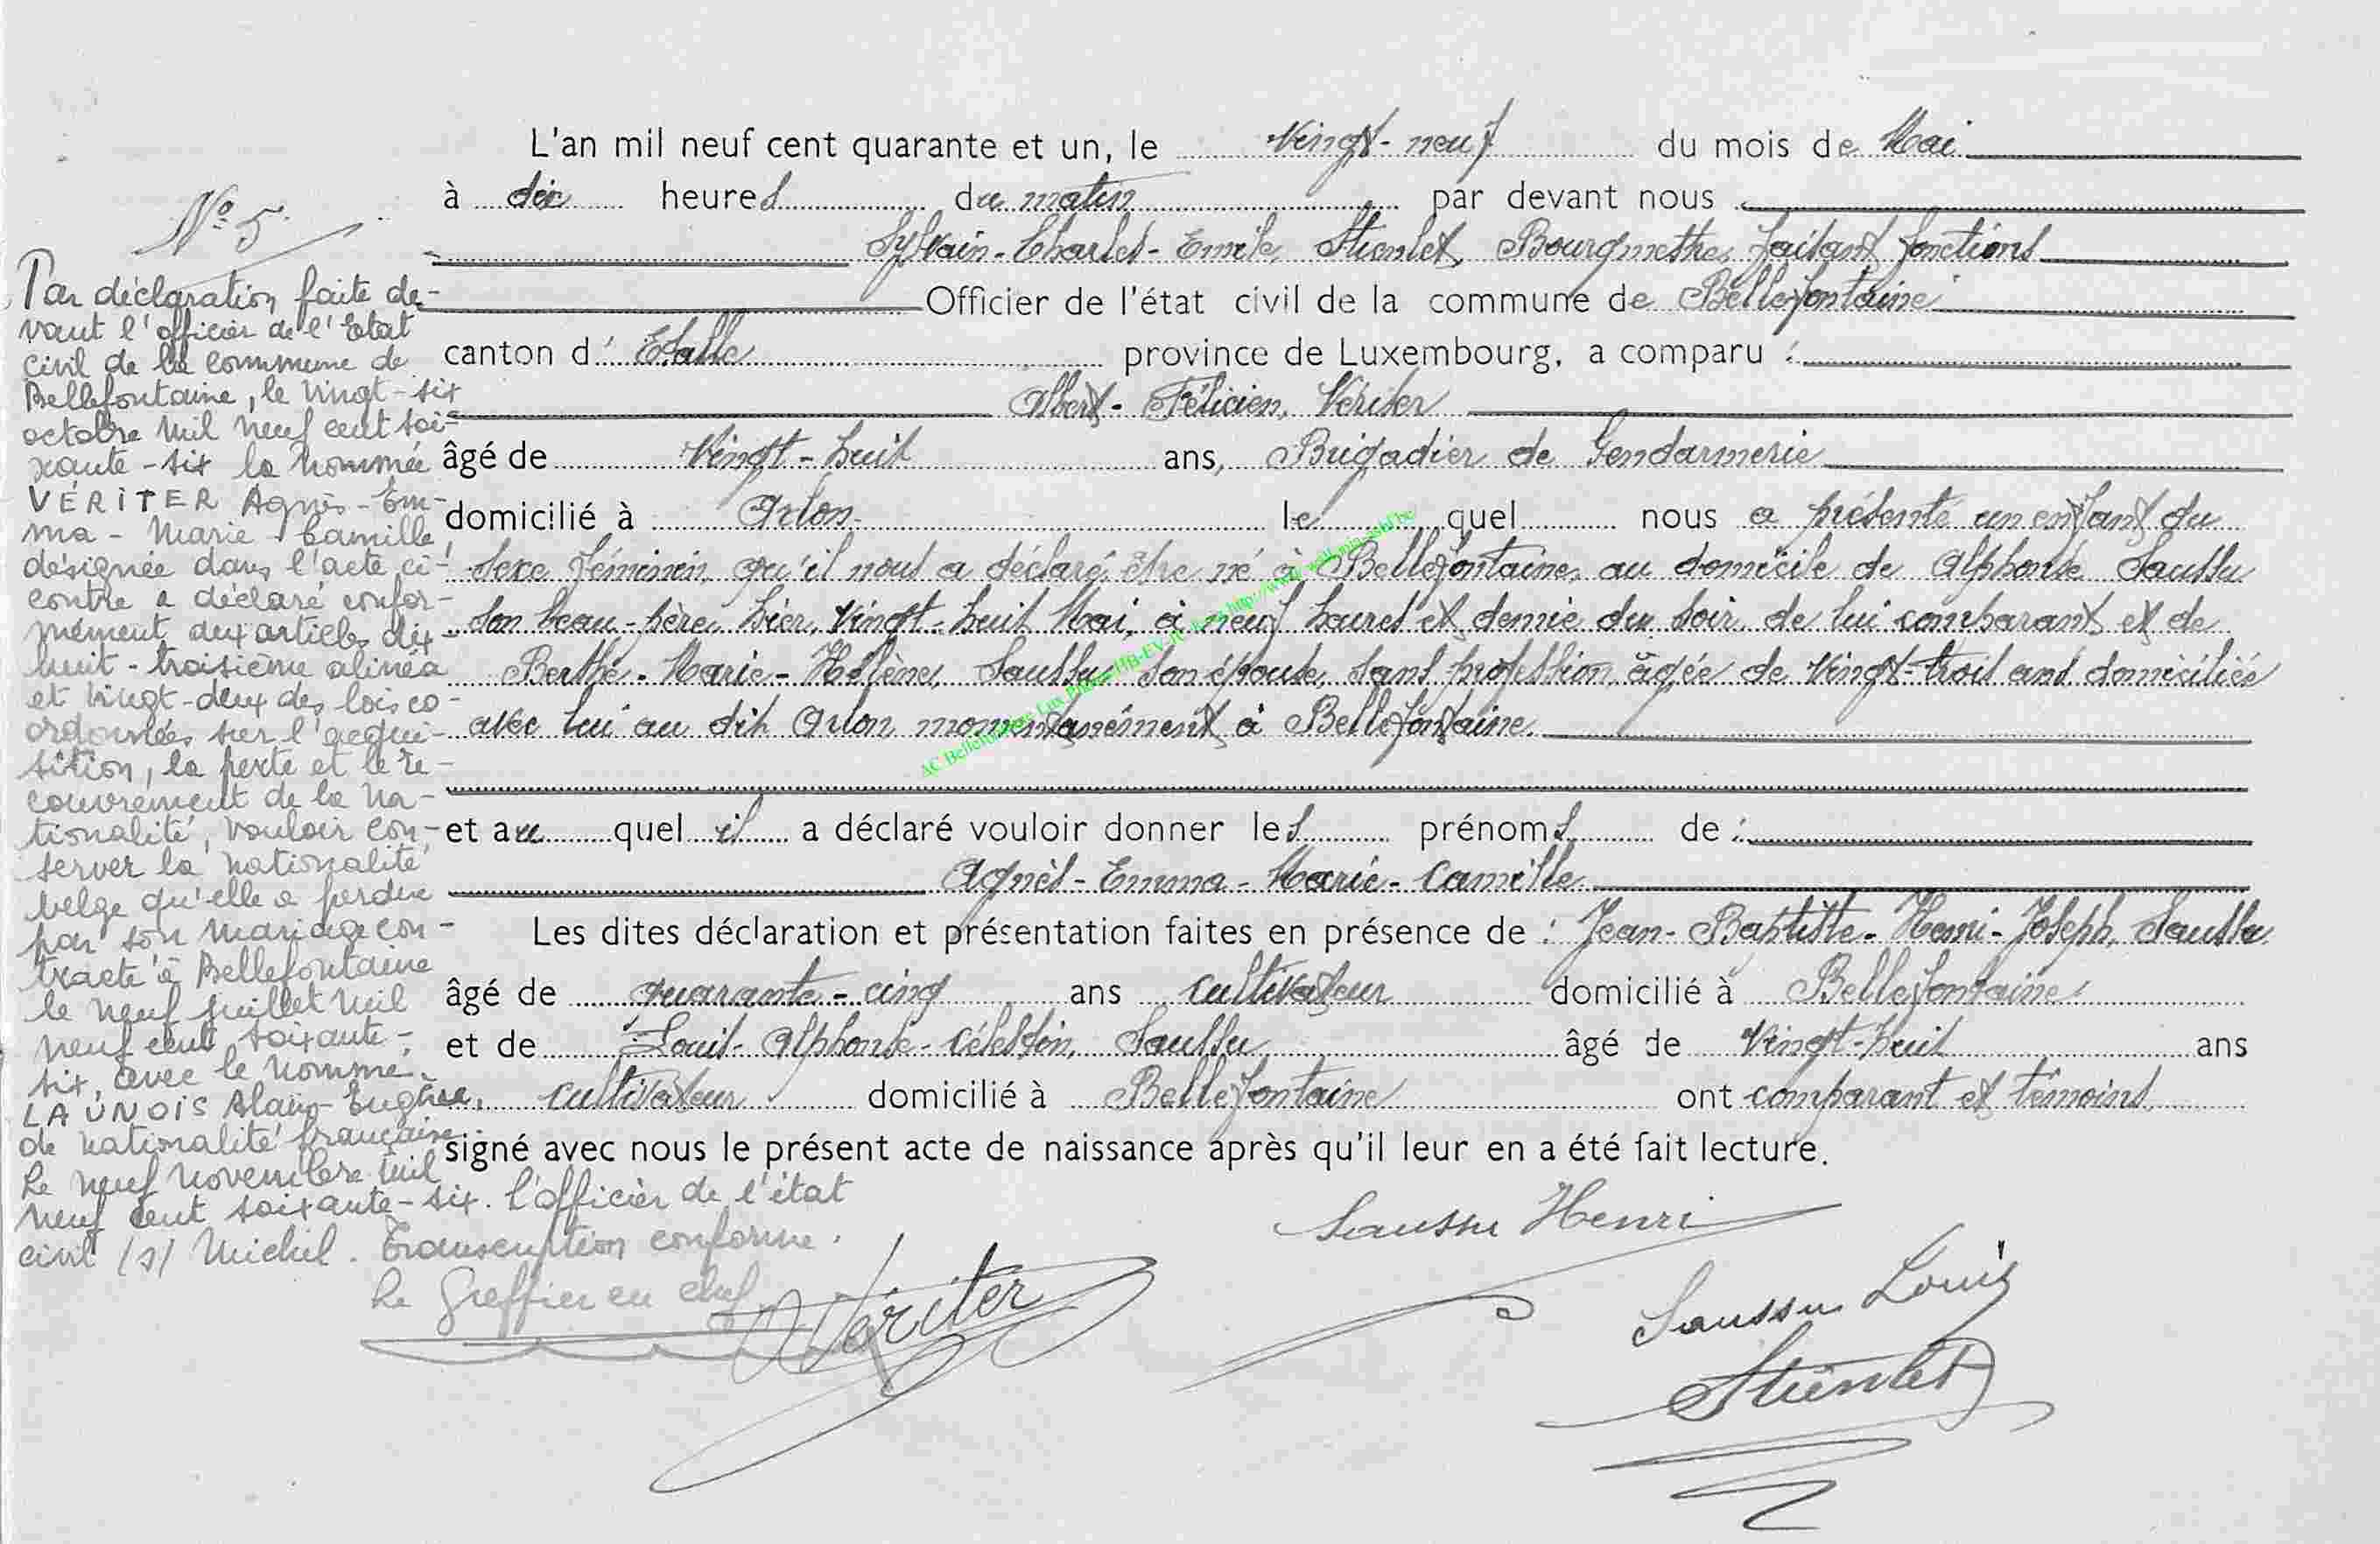 N° 5
Par déclaration faite de-
vant l'officier de l'Etat
civil de la commune de
Bellefontaine, le vingt-six
octobre mil neuf cent soi-
xante-six la nommée
VÉRITER Agnès-Em-
ma-Marie-Camille
désignée dans l'acte ci-
contre a déclaré confor-
mément aux articles dix-
huit-troisième alinéa
et vingt-deux des lois co-
ordonnées sur l'acqui-
sition, la perte et le re-
couvrement de la na-
tionalité, vouloir con-
server la nationalité
belge qu'elle a perdue
par son mariage con-
tracté à Bellefontaine
le neuf juillet mil
neuf cent soixante-
six, avec le nommé
LAUNOIS Alain-Eugène,
de nationalité française.
Le neuf novembre mil
neuf cent soixante-six. L'officier de l'état
civil (s) Michel. Transcription conforme.
Le Greffier en chef
L'an mil neuf cent quarante et un, le Vingt-neuf du mois de Mai
à dix heures du matin par devant nous
Sylvain-Charles-Emile, Stienlet, Bourgmestre, faisant fonctions
Officier de l'état civil de la commune de Bellefontaine
canton d'Etalle province de Luxembourg, a comparu :
Albert-Félicien, Vériter
âgé de Vingt-huit ans, Brigadier de Gendarmerie
domicilié à Arlon lequel nous a présenté un enfant du
sexe féminin, qu'il nous a déclaré être né à Bellefontaine, au domicile de Alphonse Saussu
son beau-père, hier, vingt-huit Mai, à neuf heures et demie du soir, de lui comparant et de
Berthe-Marie-Hélène, Saussu son épouse, sans profession, âgée de vingt-trois ans domiciliée
avec lui au dit Arlon momentanément à Bellefontaine.
et auquel il a déclaré vouloir donner les prénoms de :
Agnès-Emma-Marie-Camille
Les dites déclaration et présentation faites en présence de : Jean-Baptiste-Henri-Joseph, Saussu
âgé de quarante-cinq ans cultivateur domicilié à Bellefontaine
et de Louis-Alphonse-Célestin, Saussu âgé de Vingt-huit ans
cultivateur domicilié à Bellefontaine ont comparant et témoins
signé avec nous le présent acte de naissance après qu'il leur en a été fait lecture.
Saussu Henri
Vériter
Saussu Louis
Stienlet